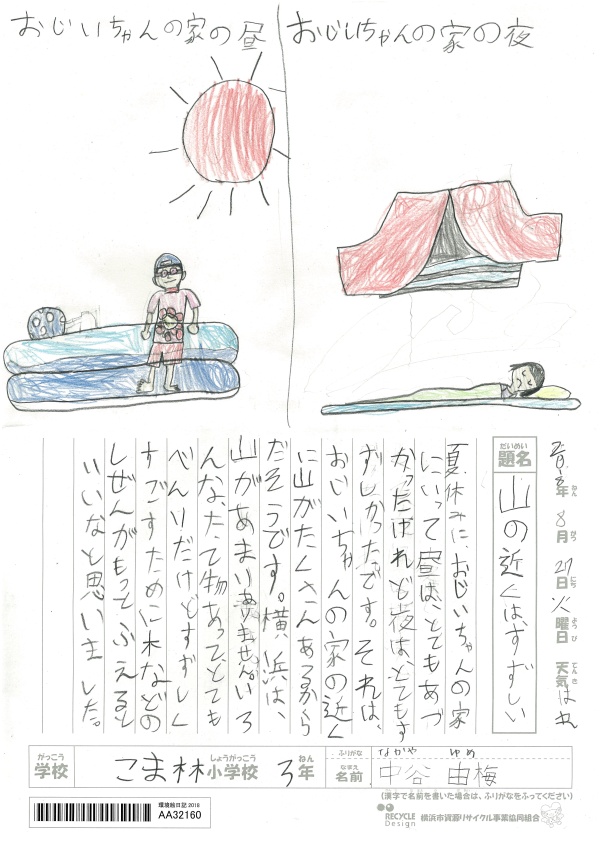 おじいちゃんの家の昼
おじいちゃんの家の夜
年 8月 27日 火曜日 天気 はれ
ねん がつ にち ようび てんき
だいめい
題名
山の近くは、すずしい
夏休みに、おじいちゃんの家
にいって昼は、とてもあつ
かったけれど夜は、とてもす
ずしかったです。それは、
おじいちゃんの家の近く
に山がたくさんあるから
だそうです。横浜は、
山があまりありません。いろ
んなたて物あって、とても
べんりだけどすずしく
すごすために木などの
しぜんがもってふえると
いいなと思いました。
がっこう
学校
こま林
しょうがっこう
小学校
3年
ねん
ふりがな
なかや ゆめ
なまえ
名前
中谷 由梅
(漢字で名前を書いた場合は、ふりがなをふってください)
環境絵日記 2018
AA32160
RECYCLE
Design
横浜市資源リサイクル事業協同組合